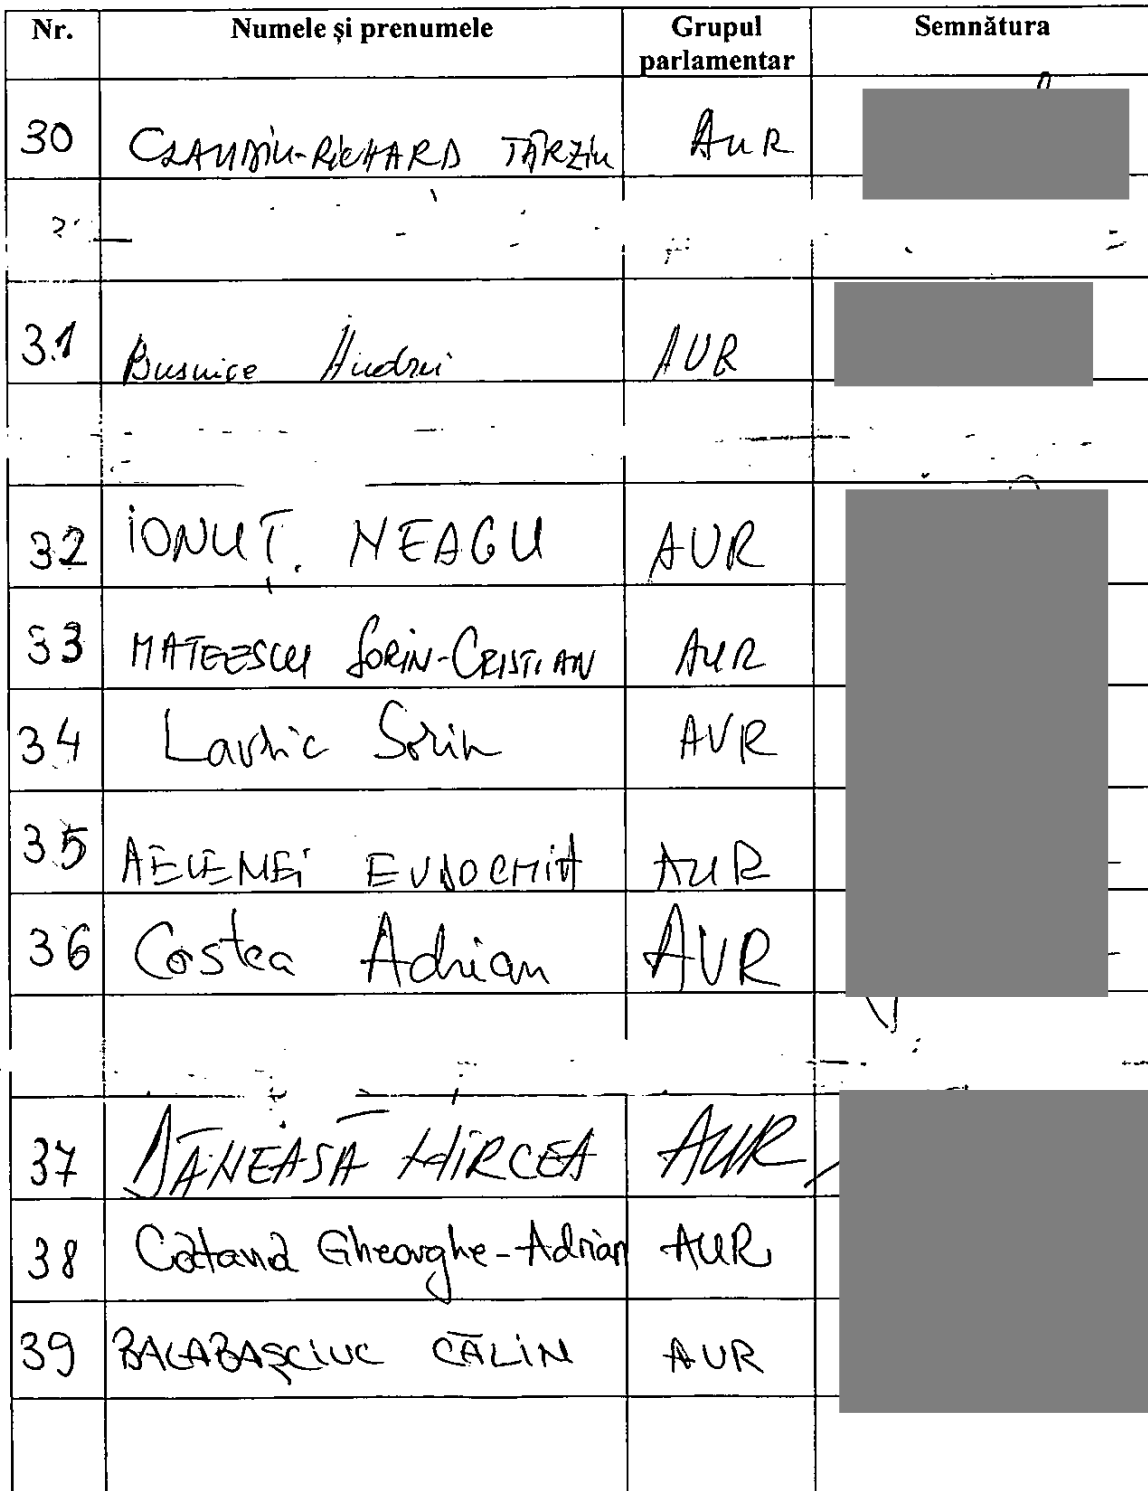 Nr. Numele și prenumele Grupul parlamentar Semnătura
30 CLAUDIU-RICHARD TÂRZIU AUR
31 Busnice Andrei AUR
32 IONUȚ. NEAGU AUR
33 MATEESCU SORIN-CRISTIAN AUR
34 Lavric Sorin AUR
35 AELENEI EVDOCHIA AUR
36 Costea Adrian AUR
37 DĂNEASĂ MIRCEA AUR
38 Catană Gheorghe-Adrian AUR
39 BALABAȘCIUC CĂLIN AUR